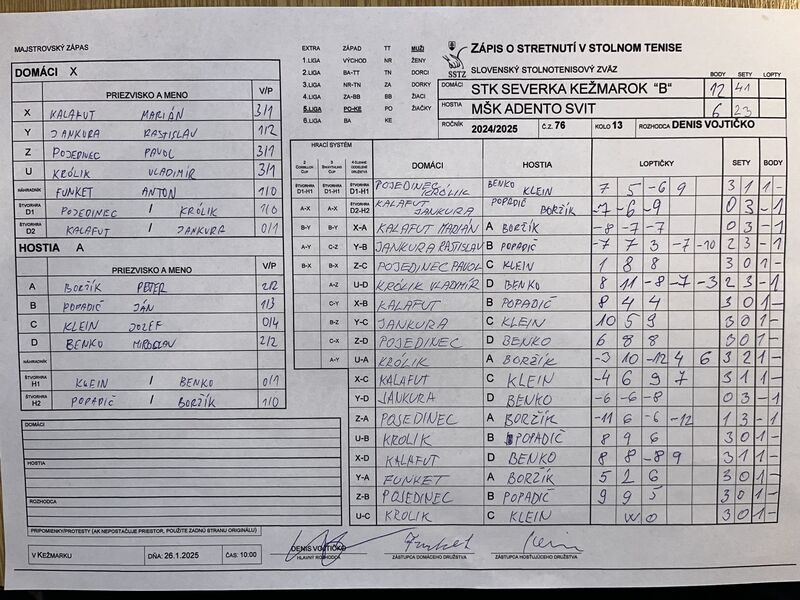 MAJSTROVSKÝ ZÁPAS
DOMÁCI X
PRIEZVISKO A MENO V/P
X KALAFUT MARIÁN 3/1
Y JANKURA RASTISLAV 1/2
Z POJEDINEC PAVOL 3/1
U KRÓLIK VLADIMÍR 3/1
NÁHRADNÍK FUNKET ANTON 1/0
ŠTVORHRA D1 POJEDINEC / KRÓLIK 1/0
ŠTVORHRA D2 KALAFUT / JANKURA 0/1
HOSTIA A
PRIEZVISKO A MENO V/P
A BORŽÍK PETER 2/2
B POPADIČ JÁN 1/3
C KLEIN JOZEF 0/4
D BENKO MIROSLAV 2/2
NÁHRADNÍK
ŠTVORHRA H1 KLEIN / BENKO 0/1
ŠTVORHRA H2 POPADIČ / BORŽÍK 1/0
DOMÁCI
HOSTIA
ROZHODCA
PRIPOMIENKY/PROTESTY (AK NEPOSTAČUJE PRIESTOR, POUŽITE ZADNÚ STRANU ORIGINÁLU)
V KEŽMARKU DŇA: 26.1.2025 ČAS: 10:00
EXTRA ZÁPAD TT MUŽI
1.LIGA VÝCHOD NR ŽENY
2.LIGA BA-TT TN DORCI
3.LIGA NR-TN ZA DORKY
4.LIGA ZA-BB BB ŽIACI
5.LIGA PO-KE PO ŽIAČKY
6.LIGA BA KE
SSTZ
ZÁPIS O STRETNUTÍ V STOLNOM TENISE
SLOVENSKÝ STOLNOTENISOVÝ ZVÄZ
BODY SETY LOPTY
DOMÁCI STK SEVERKA KEŽMAROK "B" 12 41
HOSTIA MŠK ADENTO SVIT 6 23
ROČNÍK 2024/2025 Č.Z. 76 KOLO 13 ROZHODCA DENIS VOJTIČKO
HRACÍ SYSTÉM
DOMÁCI HOSTIA LOPTIČKY SETY BODY
ŠTVORHRA D1-H1 ŠTVORHRA D1-H1 ŠTVORHRA D1-H1 POJEDINEC KRÓLIK BENKO KLEIN 7 5 -6 9 3 1 1 -
A-X A-X ŠTVORHRA D2-H2 KALAFUT JANKURA POPADIČ BORŽÍK -7 -6 -9 0 3 - 1
B-Y B-Y X-A KALAFUT MARIÁN A BORŽÍK -8 -7 -7 0 3 - 1
A-Y C-Z Y-B JANKURA RASTISLAV B POPADIČ -7 7 3 -7 -10 2 3 - 1
B-X B-X Z-C POJEDINEC PAVOL C KLEIN 1 8 8 3 0 1 -
A-Z U-D KRÓLIK VLADIMÍR D BENKO 8 11 -8 -7 -3 2 3 - 1
C-Y X-B KALAFUT B POPADIČ 8 4 4 3 0 1 -
B-Z Y-C JANKURA C KLEIN 10 5 9 3 0 1 -
C-X Z-D POJEDINEC D BENKO 6 8 8 3 0 1 -
A-Y U-A KRÓLIK A BORŽÍK -3 10 -12 4 6 3 2 1 -
X-C KALAFUT C KLEIN -4 6 9 7 3 1 1 -
Y-D JANKURA D BENKO -6 -6 -8 0 3 - 1
Z-A POJEDINEC A BORŽÍK -11 6 -6 -12 1 3 - 1
U-B KROLIK B POPADIČ 8 9 6 3 0 1 -
X-D KALAFUT D BENKO 8 8 -8 9 3 1 1 -
Y-A FUNKET A BORŽIK 5 2 6 3 0 1 -
Z-B POJEDINEC B POPADIČ 9 9 5 3 0 1 -
U-C KROLIK C KLEIN WO 3 0 1 -
DENIS VOJTIČKO
HLAVNÝ ROZHODCA
Funket
ZÁSTUPCA DOMÁCEHO DRUŽSTVA
Klein
ZÁSTUPCA HOSŤUJÚCEHO DRUŽSTVA